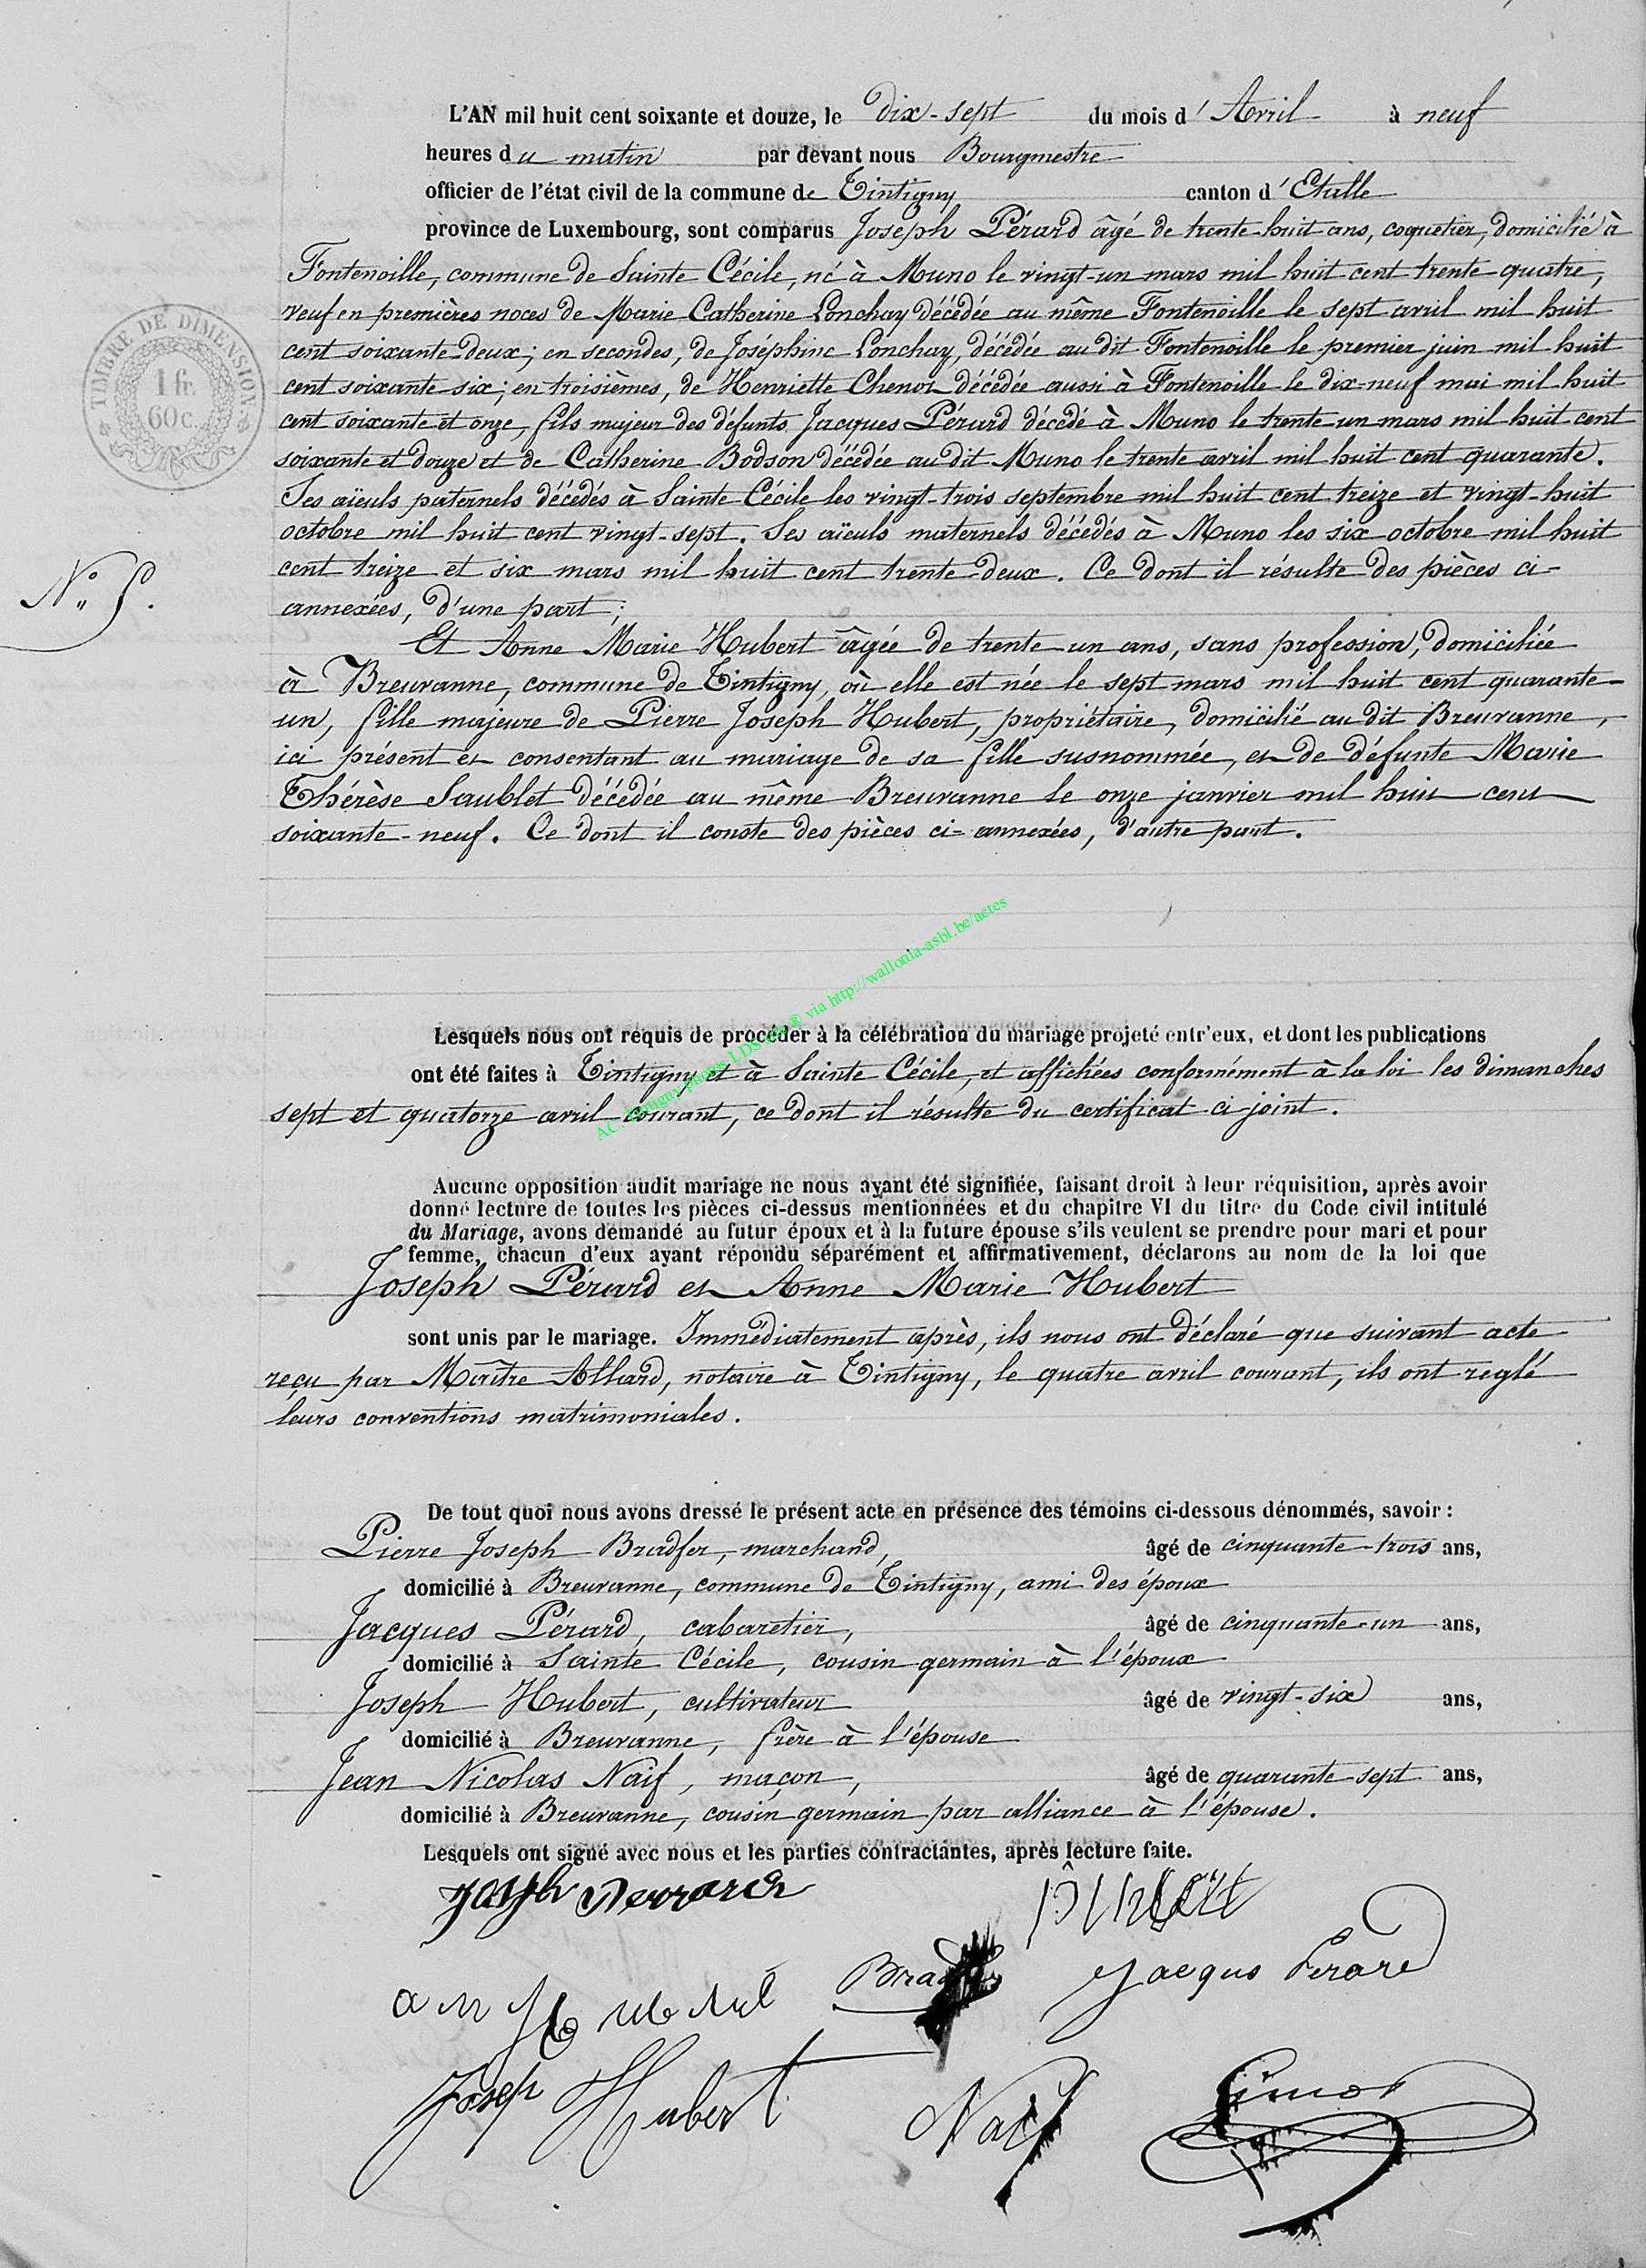 L'AN mil huit cent soixante et douze, le dix-sept du mois d'Avril à neuf
heures du matin par devant nous Bourgmestre
officier de l'état civil de la commune de Tintigny canton d'Etalle
province de Luxembourg, sont comparus Joseph Pérard âgé de trente-huit ans, coquetier, domicilié à
Fontenoille, commune de Sainte Cécile, né à Muno le vingt-un mars mil huit cent trente-quatre,
veuf en premières noces de Marie Catherine Lonchay décédée au même Fontenoille le sept avril mil huit
cent soixante-deux; en secondes, de Joséphine Lonchay, décédée au dit Fontenoille le premier juin mil huit
cent soixante-six; en troisièmes, de Henriette Chenot décédée aussi à Fontenoille le dix-neuf mai mil huit
cent soixante et onze, fils majeur des défunts Jacques Pérard décédé à Muno le trente-un mars mil huit cent
soixante et douze et de Catherine Bodson décédée au dit Muno le trente avril mil huit cent quarante.
Ses aïeuls paternels décédés à Sainte Cécile les vingt-trois septembre mil huit cent treize et vingt-huit
octobre mil huit cent vingt-sept. Ses aïeuls maternels décédés à Muno les six octobre mil huit
cent treize et six mars mil huit cent trente-deux. Ce dont il résulte des pièces ci-
annexées, d'une part;
Et Anne Marie Hubert âgée de trente-un ans, sans profession, domiciliée
à Breuvanne, commune de Tintigny, où elle est née le sept mars mil huit cent quarante-
un, fille majeure de Pierre Joseph Hubert, propriétaire, domicilié au dit Breuvanne,
ici présent et consentant au mariage de sa fille susnommée, et de défunte Marie
Thérèse Saublet décédée au même Breuvanne le onze janvier mil huit cent
soixante-neuf. Ce dont il conste des pièces ci-annexées, d'autre part.
TIMBRE DE DIMENSION.
1 fr.
60 c.
N°
AC Tintigny photos LDS via ® via http://wallonia-asbl.be/actes
Lesquels nous ont requis de procéder à la célébration du mariage projeté entr'eux, et dont les publications
ont été faites à Tintigny et à Sainte Cécile, et affichées conformément à la loi les dimanches
sept et quatorze avril courant, ce dont il résulte du certificat ci-joint.
Aucune opposition audit mariage ne nous ayant été signifiée, faisant droit à leur réquisition, après avoir
donné lecture de toutes les pièces ci-dessus mentionnées et du chapitre VI du titre du Code civil intitulé
du Mariage, avons demandé au futur époux et à la future épouse s'ils veulent se prendre pour mari et pour
femme, chacun d'eux ayant répondu séparément et affirmativement, déclarons au nom de la loi que
Joseph Pérard et Anne Marie Hubert
sont unis par le mariage. Immédiatement après, ils nous ont déclaré que suivant acte
reçu par Maître Allard, notaire à Tintigny, le quatre avril courant, ils ont reglé
leurs conventions matrimoniales.
De tout quoi nous avons dressé le présent acte en présence des témoins ci-dessous dénommés, savoir :
Pierre Joseph Bradfer, marchand, âgé de cinquante-trois ans,
domicilié à Breuvanne, commune de Tintigny, ami des époux
Jacques Pérard, cabaretier, âgé de cinquante-un ans,
domicilié à Sainte Cécile, cousin germain à l'époux
Joseph Hubert, cultivateur âgé de vingt-six ans,
domicilié à Breuvanne, frère à l'épouse
Jean Nicolas Naif, maçon, âgé de quarante-sept ans,
domicilié à Breuvanne, cousin germain par alliance à l'épouse.
Lesquels ont signé avec nous et les parties contractantes, après lecture faite.
Joseph Perrard
a m Hubert Jacqus Perard
Josep Hubert Naif